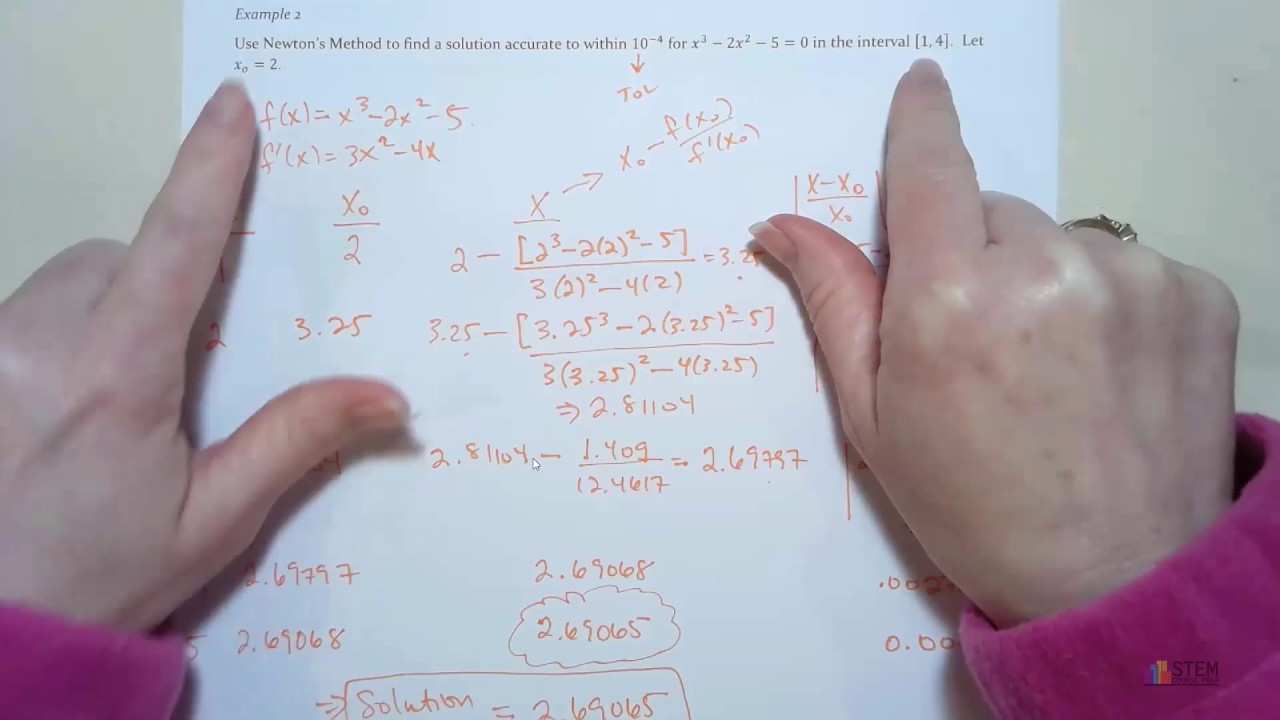 Example 2
Use Newton's Method to find a solution accurate to within 10⁻⁴ for x³ − 2x² − 5 = 0 in the interval [1, 4]. Let
x₀ = 2.
TOL
f(x) = x³ − 2x² − 5
f'(x) = 3x² − 4x
x₀ − f(x₀)/f'(x₀)
X₀ X |X − X₀ / X₀|
2 2 − [2³ − 2(2)² − 5] / 3(2)² − 4(2) = 3.25
2 3.25 3.25 − [3.25³ − 2(3.25)² − 5] / 3(3.25)² − 4(3.25)
⇒ 2.81104
2.81104 − 1.409 / 12.4617 = 2.69797
2.69797 2.69068 .002
5 2.69068 2.69065 0.00
⇒ Solution = 2.69065
STEM